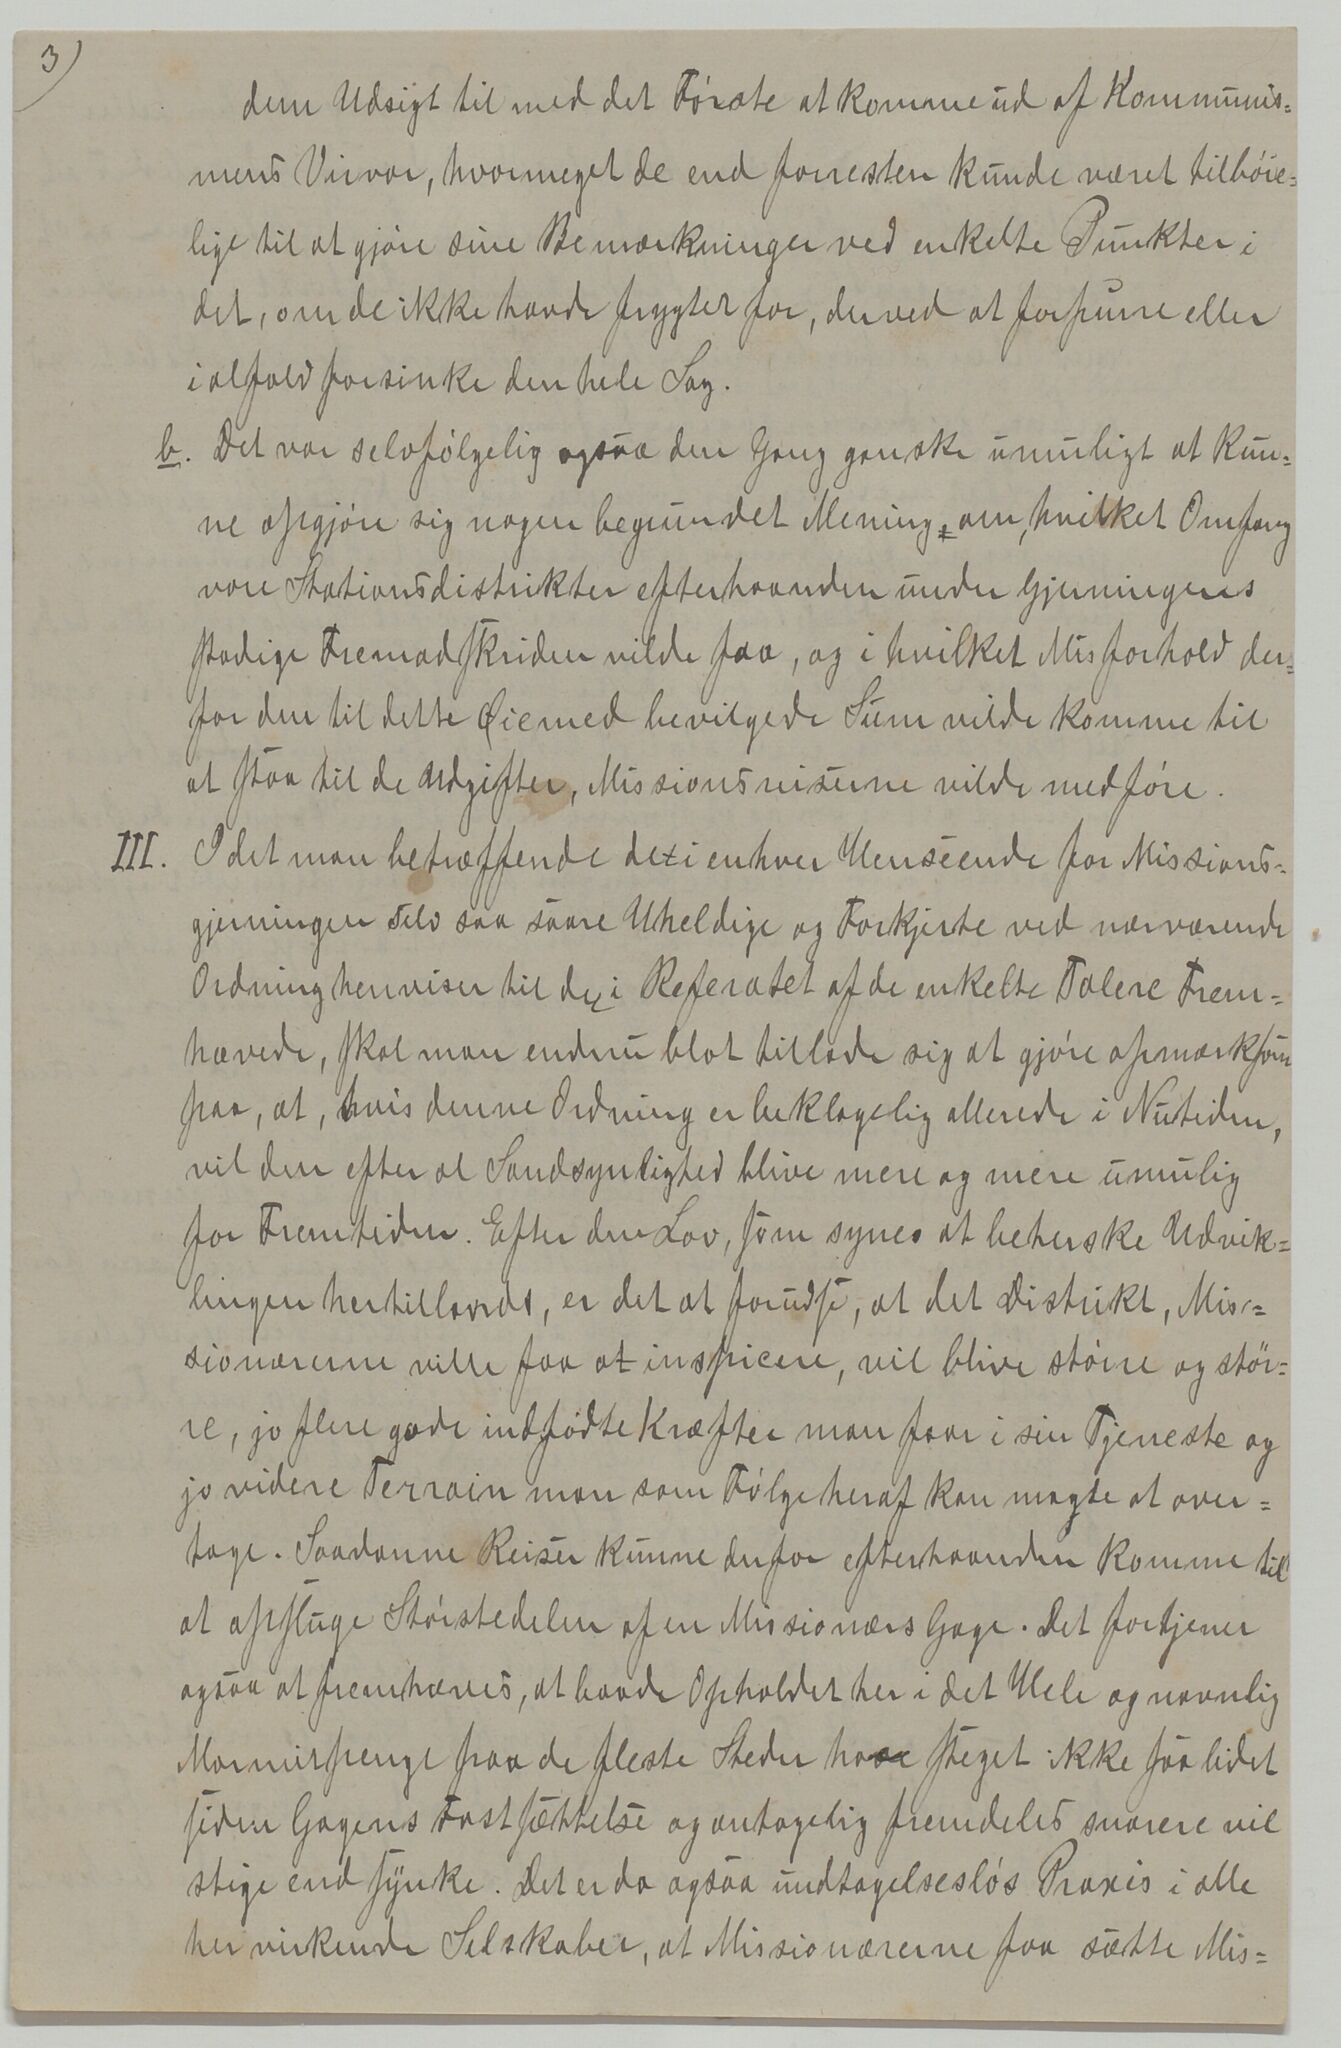 3)
dem Udsigt til med det Første at komme ud af Kommunis=
mens Virvar, hvormeget de end forresten kunde været tilbøie=
lige til at gjøre sine Bemærkninger ved enkelte Punkter i
det, om de ikke havde frygtet for, derved at forpurre eller
ialfald forsinke den hele Sag.
b. Det var selvfølgelig ogsaa den Gang ganske umuligt at kun=
ne opgjøre sig nogen begrundet Mening om, hvilket Omfang
vore Stationsdistrikter efterhaanden under Gjerningens
stadige Fremadskriden vilde faa, og i hvilket Misforhold der=
for den til dette Øiemed bevilgede Sum vilde komme til
at staa til de Udgifter, Missionsreiserne vilde medføre.
III. Idet man betræffende det i enhver Henseende for Missions=
gjerningen selv saa saare Uheldige og Forkjerte ved nærværende
Ordning henviser til de i Referatet af de enkelte Talere Frem=
hævede, skal man endnu blot tillade sig at gjøre opmærksom
paa, at, hvis denne Ordning er beklagelig allerede i Nutiden,
vil den efter al Sandsynlighed blive mere og mere umulig
for Fremtiden. Efter den Lov, som synes at beherske Udvik=
lingen hertillands, er det at forudse, at det Distrikt, Mis=
sionærerne ville faa at inspicere, vil blive større og stør=
re, jo flere gode indfødte Kræfter man faar i sin Tjeneste og
jo videre Terrain man som Følge heraf kan magte at over=
tage. Saadanne Reiser kunne derfor efterhaanden komme til
at opsluge Størstedelen af en Missionærs Gage. Det fortjener
ogsaa at fremhæves, at baade Opholdet her i det Hele og navnlig
Marmitspenge paa de fleste Steder have steget ikke saa lidet
siden Gagens Fastsættelse og antagelig fremdeles snarere vil
stige end synke. Det er da ogsaa undtagelsesløs Praxis i alle
her virkende Selskaber, at Missionærerne faa sætte Mis=